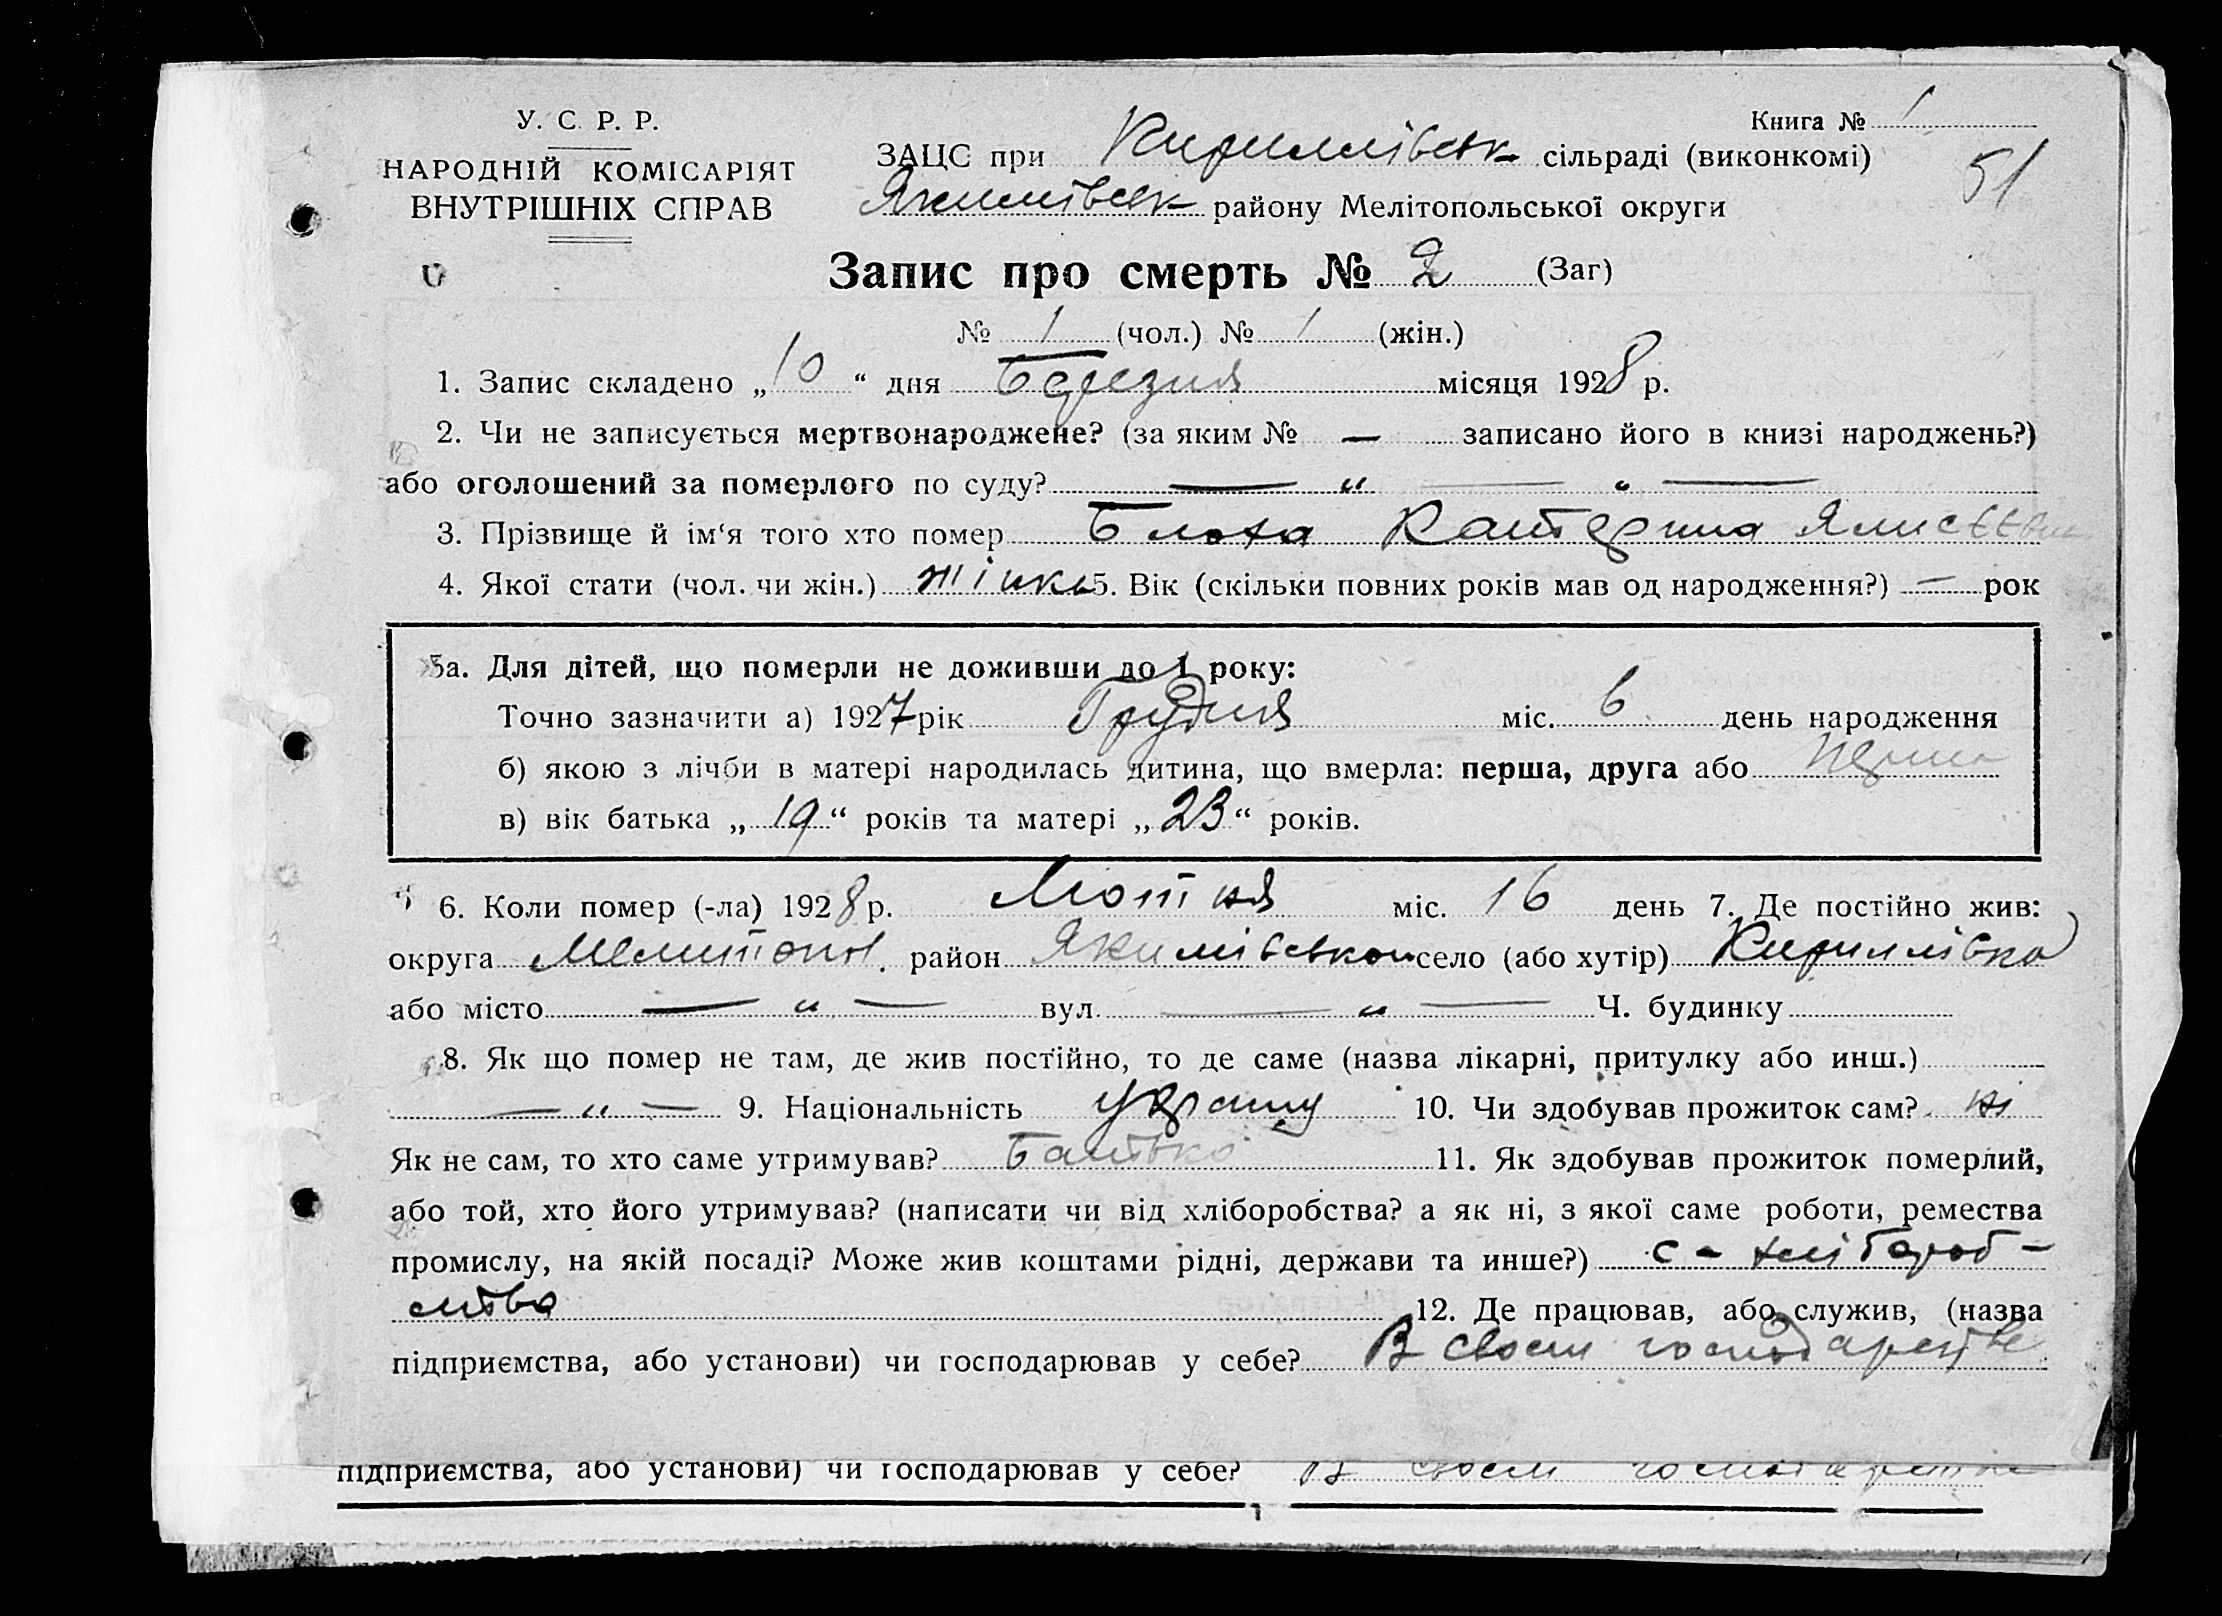 У. С. Р. Р.
НАРОДНІЙ КОМІСАРІЯТ
ВНУТРІШНІХ СПРАВ
Книга № 1
51
ЗАЦС при Кириллівськ сільраді (виконкомі)
Якимівськ району Мелітопольської округи
Запис про смерть № 2 (Заг)
№ 1 (чол.) № 1 (жін.)
1. Запис складено „ 10 “ дня Березня місяця 1928 р.
2. Чи не записується мертвонароджене? (за яким № — записано його в книзі народжень?)
або оголошений за померлого по суду? — „ — „ —
3. Прізвище й ім‘я того хто помер Блоха Катерина
4. Якої стати (чол. чи жін.) жінка 5. Вік (скільки повних років мав од народження?) — рок
5а. Для дітей, що померли не доживши до 1 року:
Точно зазначити а) 1927 рік Грудня міс. 6 день народження
б) якою з лічби в матері народилась дитина, що вмерла: перша, друга або перша
в) вік батька „ 19 “ років та матері „ 23 “ років.
6. Коли помер (-ла) 1928 р. Лютня міс. 16 день 7. Де постійно жив:
округа Мелитопол. район Якимівськом село (або хутір) Кириллівка
або місто — „ — вул. — „ — Ч. будинку
8. Як що помер не там, де жив постійно, то де саме (назва лікарні, притулку або инш.)
— „ — 9. Національність 10. Чи здобував прожиток сам? ні
Як не сам, то хто саме утримував? Батько 11. Як здобував прожиток померлий,
або той, хто його утримував? (написати чи від хліборобства? а як ні, з якої саме роботи, ремества
промислу, на якій посаді? Може жив коштами рідні, держави та инше?) с - хлібороб -
ства 12. Де працював, або служив, (назва
підприємства, або установи) чи господарював у себе? В своем господарстве
підприємства, або установи) чи господарював у себе? В своем господарстве